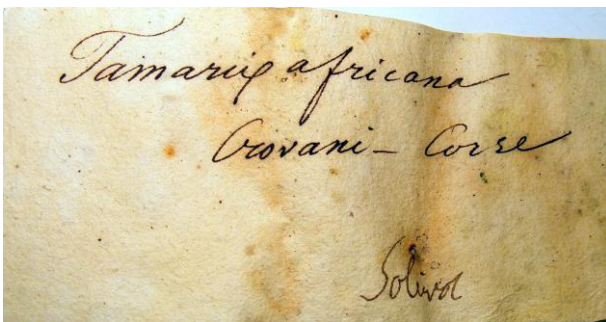 Tamarix africana
Crovani - Corse
Solirol